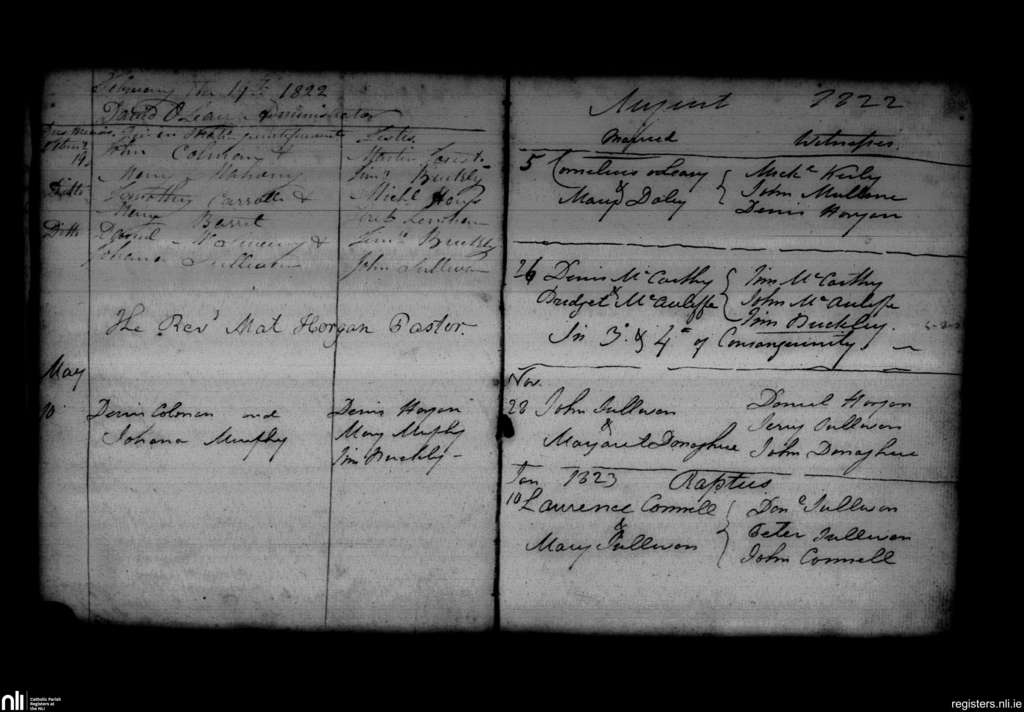 February the 19th 1822
David O Leary Administrator
John Colmany &
Mary Mahony
Timothy Carroll &
Mary Barret
Ditto Daniel &
Johana Sullivan
Testes
Martin
Timy Buckley
Michl Horg
Timy Buckley
John Sullivan
The Revd Mat Horgan Pastor.
May
10 Denis Colman and
Johana Murphy
Denis Horgan
Mary Murphy
Jim Buckly
August 1822
Married Witnesses
5 Cornelius o Leary
& Mary Daly
Mick Kirby
John Mullane
Denis Horgan
26 Denis McCarthy
& Bridget McAuliffe
Tim McCarthy
John McAuliffe
Tim Buckley.
In 3° & 4° of Consanguinity
Nov.
28 John Sullivan
& Margaret Donaghue
Daniel Horgan
Jerry Sullivan
John Donaghue
Jan 1823 Raptus
10 Laurence Connell
& Mary Sullivan
Dan Sullivan
Peter Sullivan
John Connell
nli
Catholic Parish
Registers at
the NLI
registers.nli.ie